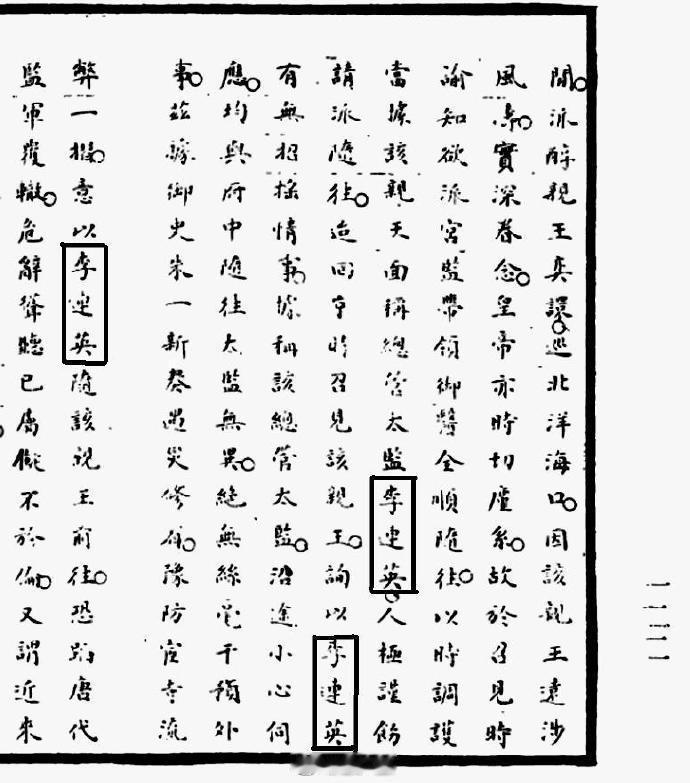 間派醇親王奕譞巡北洋海口因該親王遠涉
風濤實深眷念皇帝亦時切廑系故於召見時
諭知欲派宮監帶領御醫全順隨往以時調護
當據該親天面稱總管太監李連英人極謹飭
請派隨往迨回京時召見該親王詢以李連英
有無招搖情事據稱該總管太監沿途小心伺
應均與府中隨往太監無異絕無絲毫干預外
事茲據御史朱一新奏遇災修省豫防宦寺流
弊一摺意以李連英隨該親王前往恐蹈唐代
監軍覆轍危辭聳聽已屬擬不於倫又謂近來